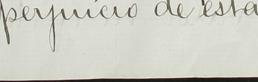 perjuicio de esta